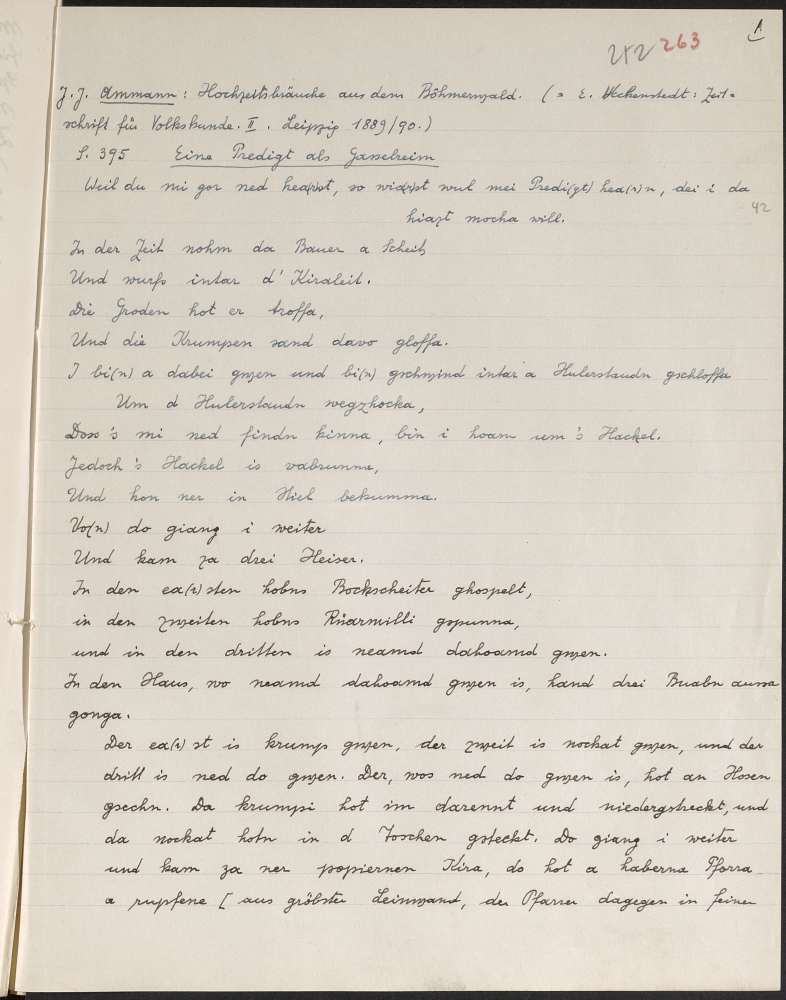 1
212 263
J. J. Ammann: Hochzeitsbräuche aus dem Böhmerwald. (= E. Veckenstedt: Zeit=
schrift für Volkskunde. II. Leipzig 1889/90.)
S. 395 Eine Predigt als Gasselreim
Weil du mi gor ned hea(r)st, so wia(r)st wul mei Predi(gt) hea(r)n, dei i da
42
hiazt mocha will.
In der Zeit nohm da Bauer a Scheit
Und wurfs intar d' Kiraleit.
Die Groden hot er troffa,
Und die Krumpen sand davo gloffa.
I bi(n) a dabei gwen und bi(n) gschwind intar a Hulerstaudn gschloffa
Um d Hulerstaudn wegzhocka,
Doss's mi ned findn kinna, bin i hoam um's Hackel.
Jedoch's Hackel is vabrunna,
Und hon ner in Hiel bekumma.
Vo(n) do giang i weiter
Und kam za drei Heiser.
In den ea(r)sten hobns Bockscheiter ghospelt,
in den zweiten hobns Rüarmilli gspunna,
und in den dritten is neamd dahoamd gwen.
In den Haus, wo neamd dahoamd gwen is, hand drei Buabn aussa
gonga.
Der ea(r)st is krump gwen, der zweit is nockat gwen, und der
dritt is ned do gwen. Der, wos ned do gwen is, hot an Hosen
gsechn. Da krumpi hot im darennt und niedergstreckt, und
da nockat hotn in d Toschen gsteckt. Do giang i weiter
und kam za ner papiernen Kira, do hot a haberna Pforra
a rupfene [aus gröbster Leinwand, der Pfarrer dagegen in feiner